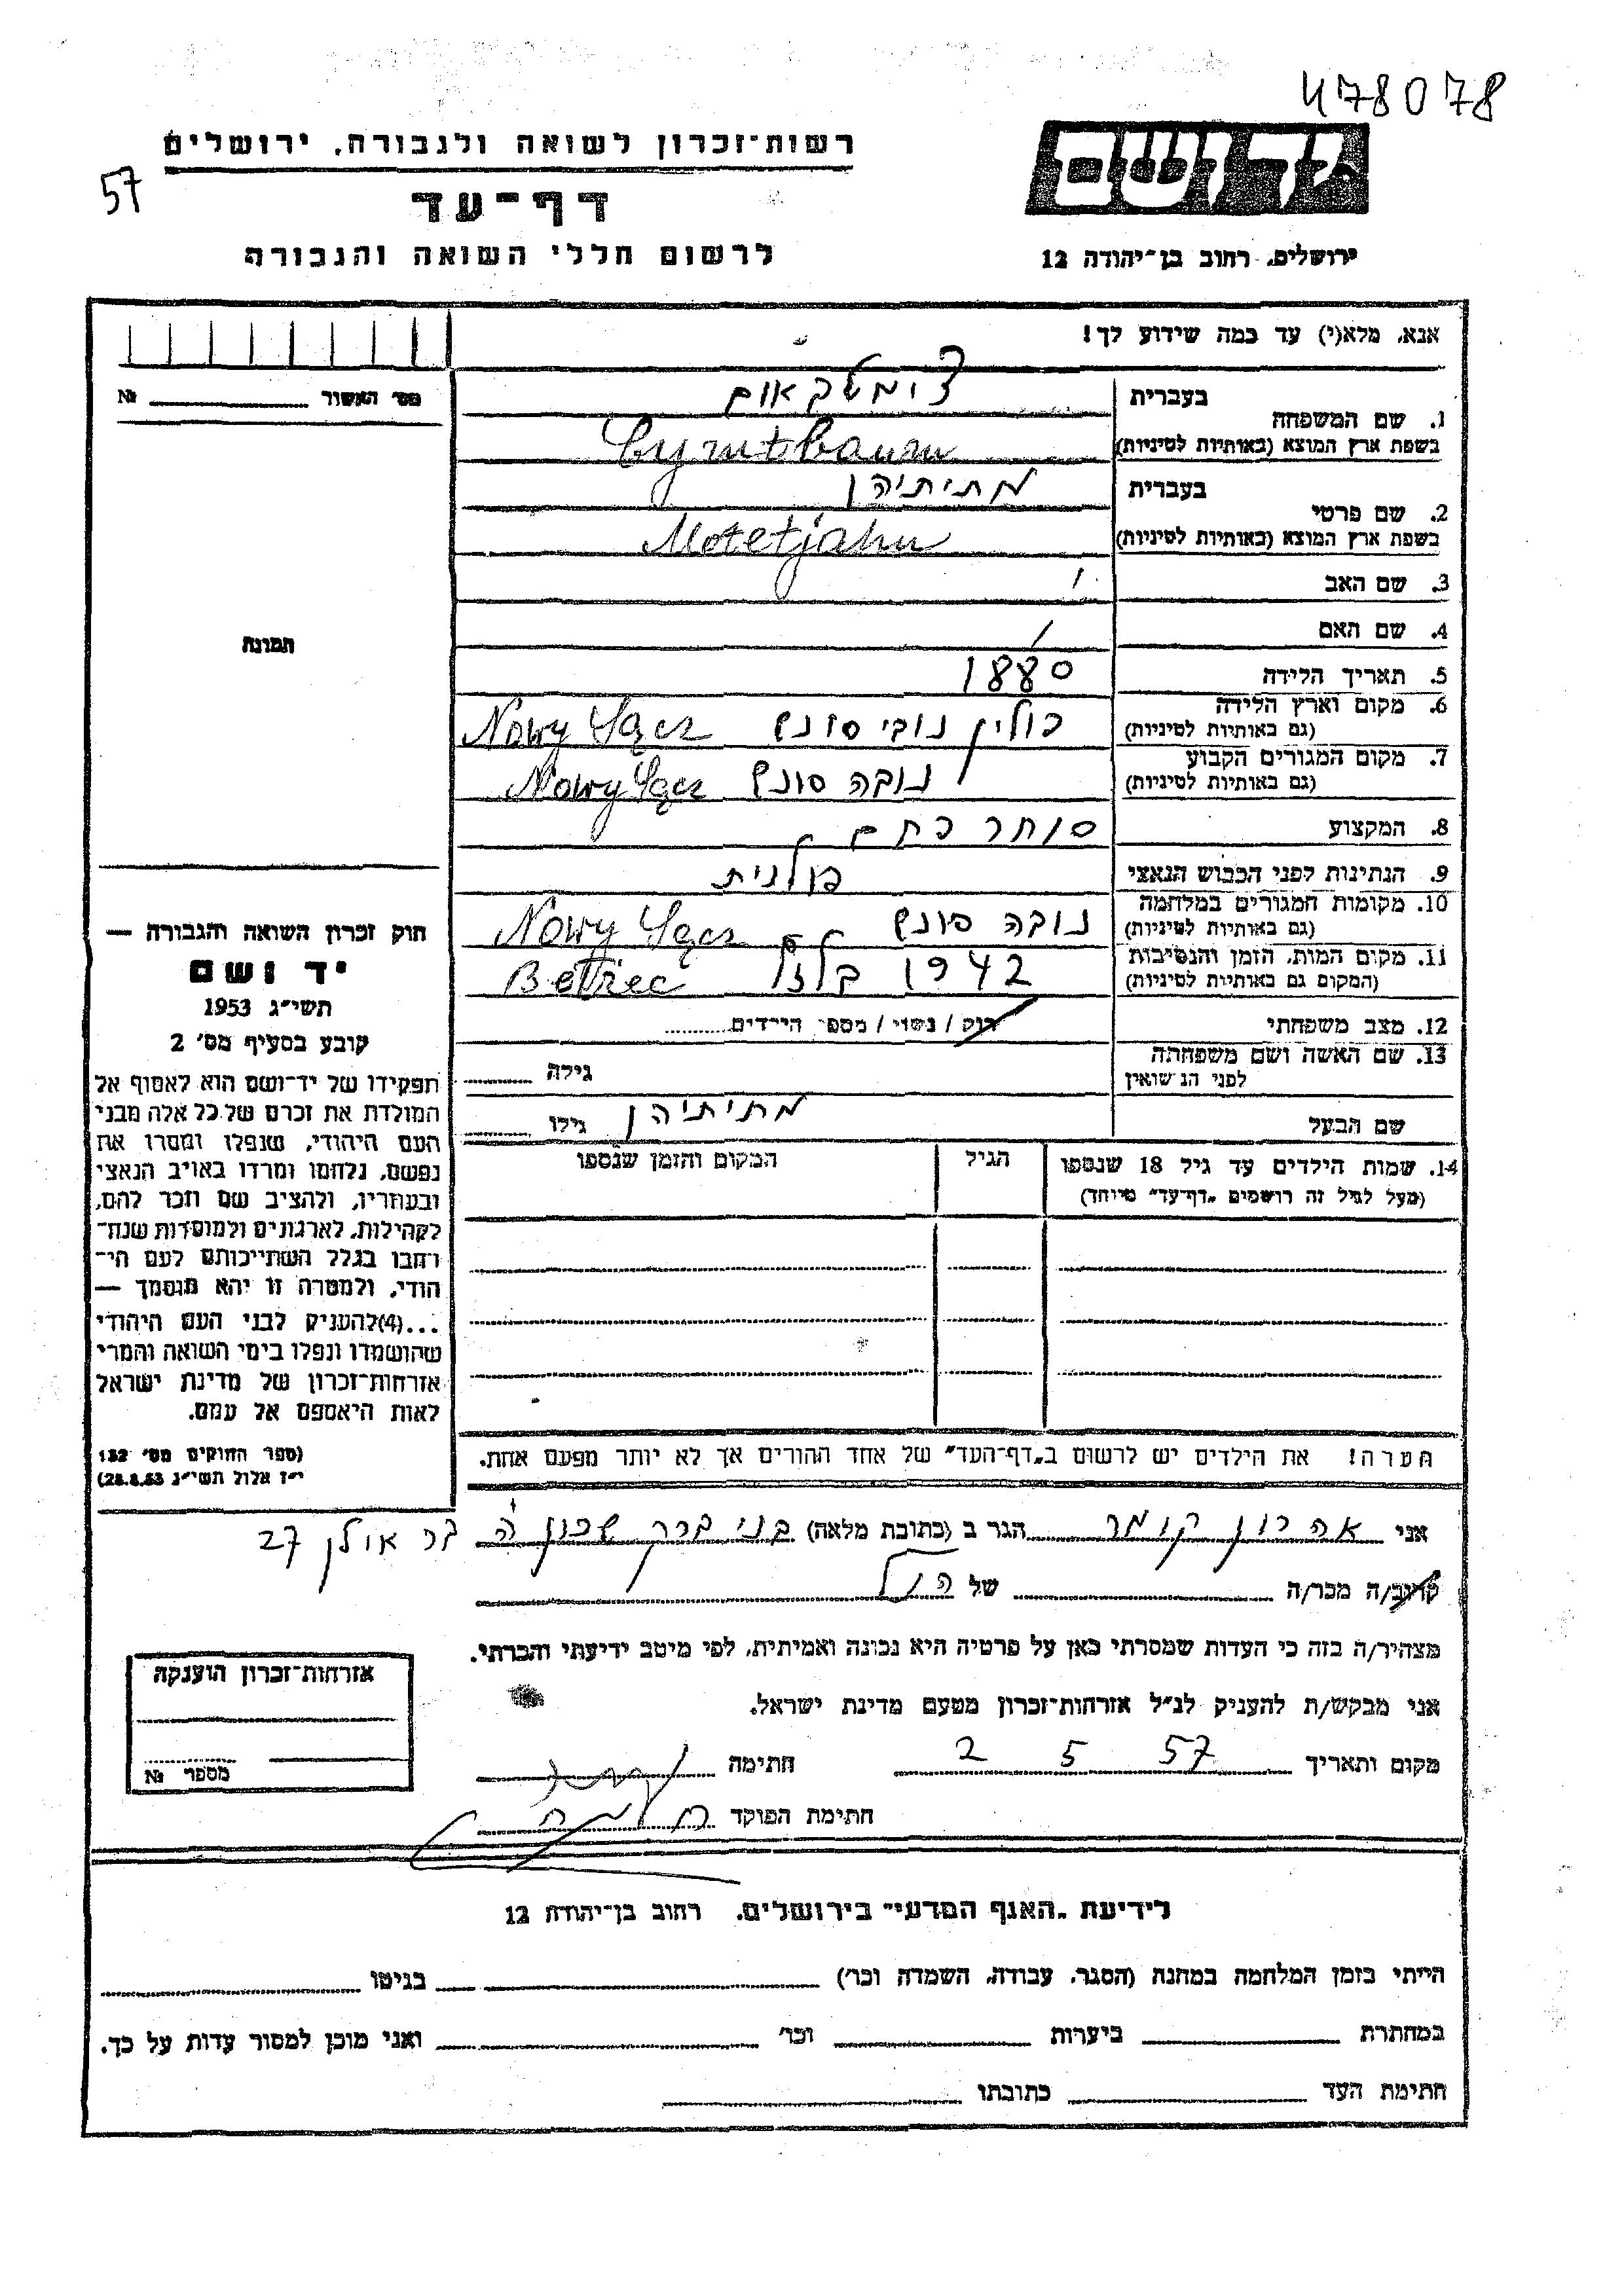 478078
רשות־זכרון לשואה ולגבורה, ירושלים
57
דף־עד
לרשום חללי השואה והגבורה
יד ושם
ירושלים, רחוב בן־יהודה 12
אנא, מלא(י) עד כמה שידוע לך!
מס' האשור № 
בעברית צימטבאום
1. שם המשפחה
בשפת ארץ המוצא (באותיות לטיניות) Cymtbaum
בעברית מתיתיהו
2. שם פרטי
בשפת ארץ המוצא (באותיות לטיניות) Motetjahu
3. שם האב /
4. שם האם /
5. תאריך הלידה 1880
6. מקום וארץ הלידה
(גם באותיות לטיניות) פולין נובי סונץ Nowy Sącz
7. מקום המגורים הקבוע
(גם באותיות לטיניות) נובה סונץ Nowy Sącz
8. המקצוע סוחר פחם
9. הנתינות לפני הכבוש הנאצי פולנית
10. מקומות המגורים במלחמה
(גם באותיות לטיניות) נובה סונץ Nowy Sącz
11. מקום המות, הזמן והנסיבות
(המקום גם באותיות לטיניות) 1942 בלזץ Bełżec
12. מצב משפחתי רוק / נשוי / מספר הילדים
13. שם האשה ושם משפחתה
לפני הנישואין גילה
שם הבעל מתיתיהו גילו
14. שמות הילדים עד גיל 18 שנספו
(מעל לגיל זה רושמים „דף־עד" מיוחד)
הגיל
המקום והזמן שנספו
הערה! את הילדים יש לרשום ב„דף־העד" של אחד ההורים אך לא יותר מפעם אחת.
תמונה
חוק זכרון השואה והגבורה —
יד ושם
תשי"ג 1953
קובע בסעיף מס' 2
תפקידו של יד־ושם הוא לאסוף אל
המולדת את זכרם של כל אלה מבני
העם היהודי, שנפלו ומסרו את
נפשם, נלחמו ומרדו באויב הנאצי
ובעוזריו, ולהציב שם וזכר להם,
לקהילות, לארגונים ולמוסדות שנח־
רבו בגלל השתייכותם לעם הי־
הודי, ולמטרה זו יהא מוסמך —
...(4)להעניק לבני העם היהודי
שהושמדו ונפלו בימי השואה והמרי
אזרחות־זכרון של מדינת ישראל
לאות היאספם אל עמם.
(ספר החוקים מס' 132
י"ז אלול תשי"ג 28.8.53)
אני אהרון קומר הגר ב (כתובת מלאה) בני ברק שכון ה בר אולן 27
קרוב/ה מכר/ה של הנ"ל
מצהיר/ה בזה כי העדות שמסרתי כאן על פרטיה היא נכונה ואמיתית, לפי מיטב ידיעתי והכרתי.
אני מבקש/ת להעניק לנ"ל אזרחות־זכרון מטעם מדינת ישראל.
מקום ותאריך 2 5 57 חתימה
חתימת הפוקד
אזרחות־זכרון הוענקה
מספר №
לידיעת „האגף המדעי" בירושלים, רחוב בן־יהודה 12
הייתי בזמן המלחמה במחנה (הסגר, עבודה, השמדה וכו') בגיטו
במחתרת ביערות וכו' ואני מוכן למסור עדות על כך.
חתימת העד כתובתו